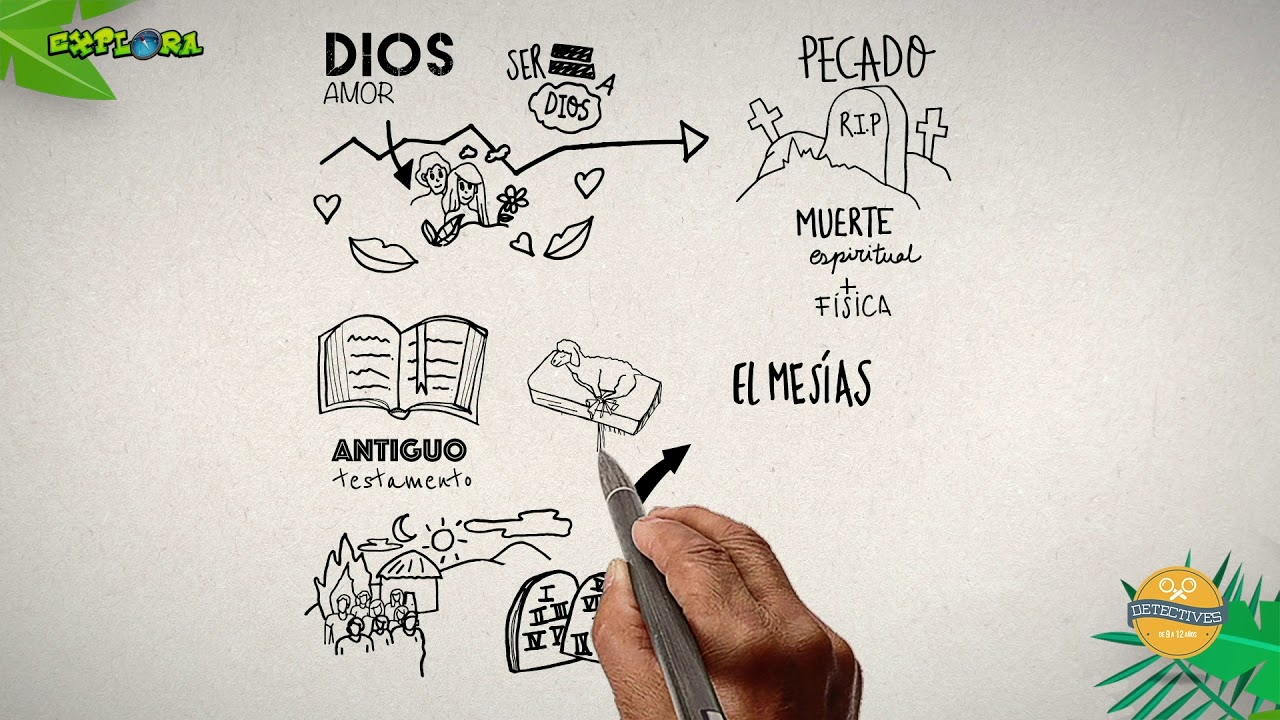 EXPLORA
DIOS
AMOR
SER
A
DIOS
PECADO
R.I.P
MUERTE
espiritual
+
FÍSICA
EL MESÍAS
ANTIGUO
testamento
I
II III
IV V
VI
DETECTIVES
DE 9 A 12 AÑOS